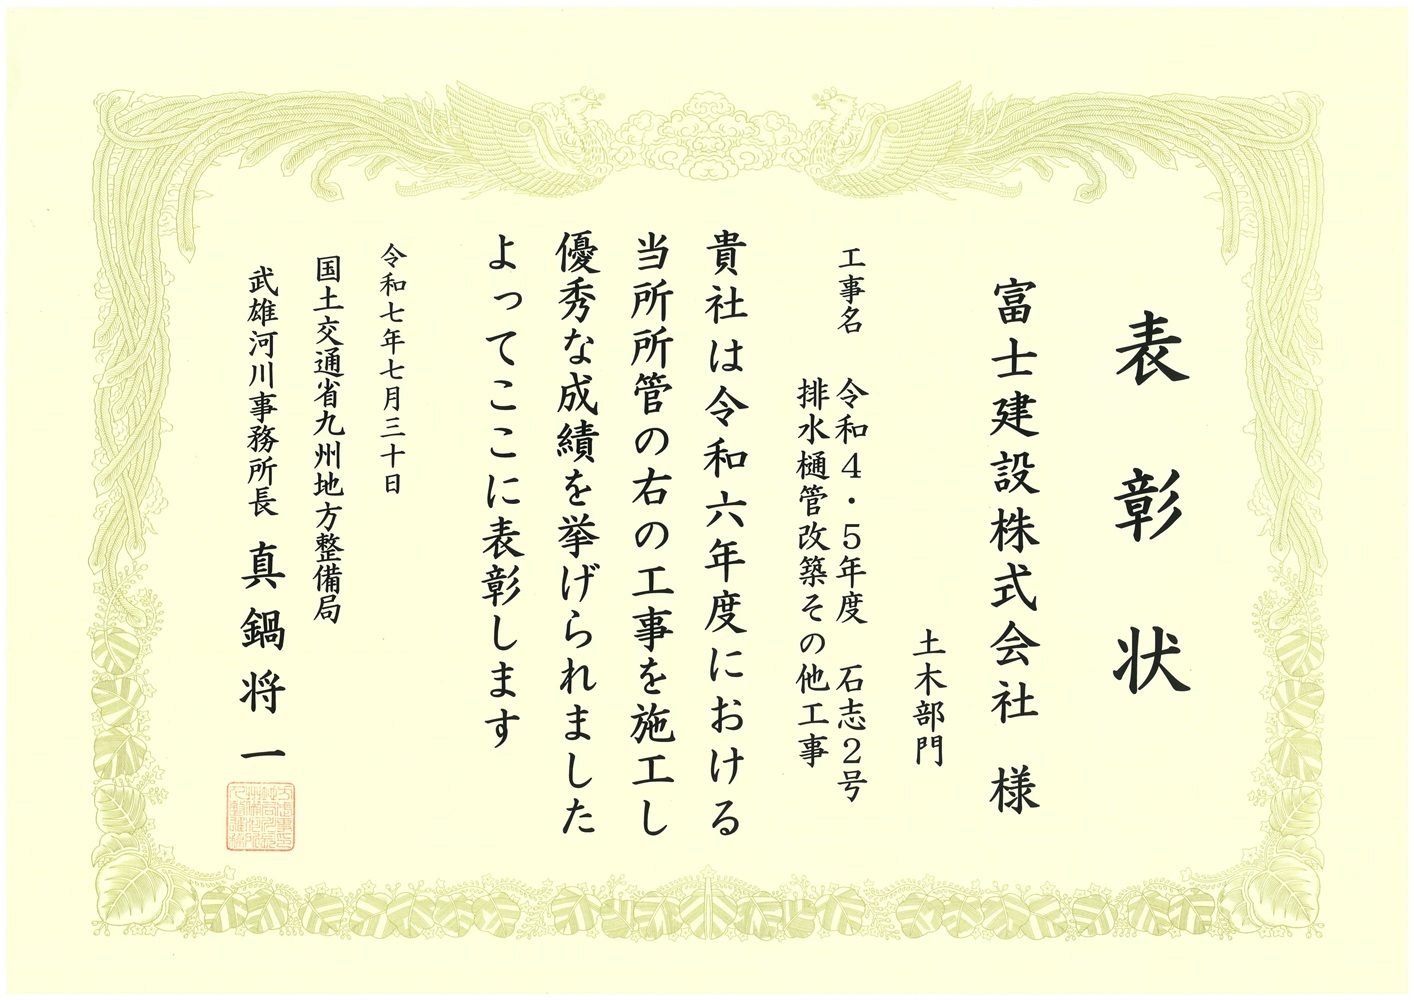 表彰状
富士建設株式会社 様
土木部門
工事名 令和４・５年度 石志２号
排水樋管改築その他工事
貴社は令和六年度における
当所所管の右の工事を施工し
優秀な成績を挙げられました
よってここに表彰します
令和七年七月三十日
国土交通省九州地方整備局
武雄河川事務所長 真鍋将一